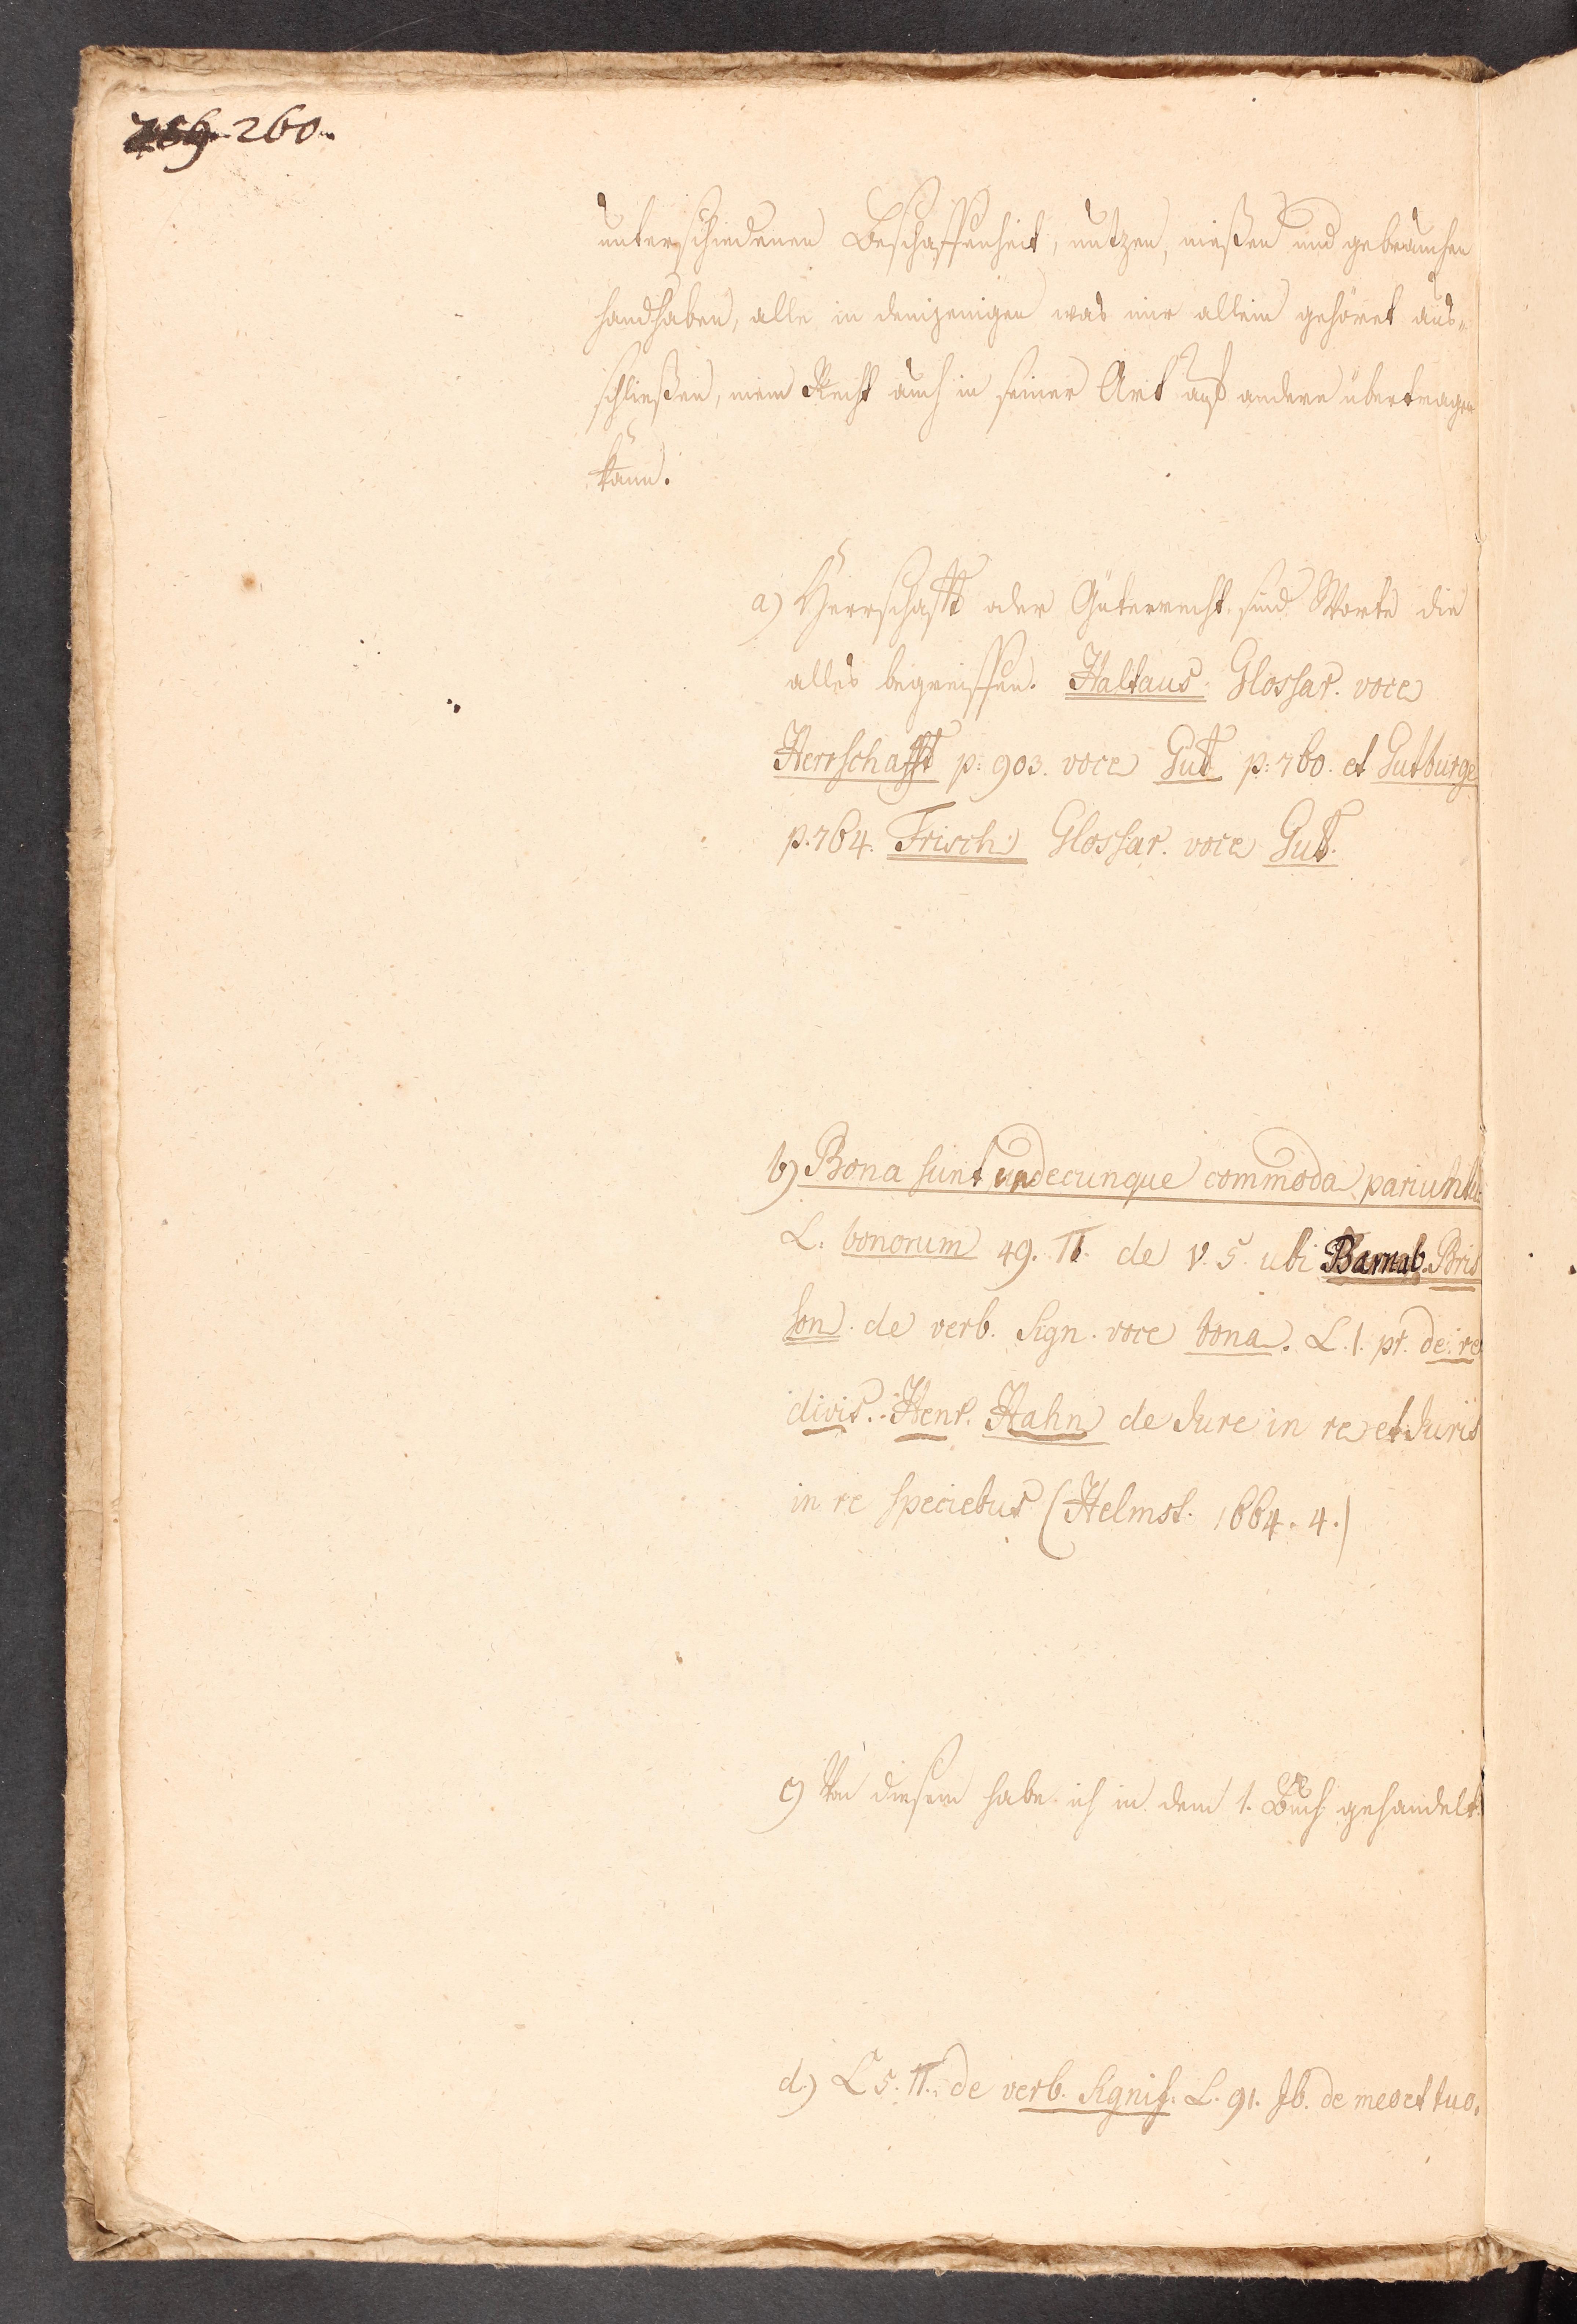 260.
unterschiedenen Beschaffenheit, nutzen, nießen und gebrauchen
handhaben, alle in demjenigen was mir allein gehöret aus„
schließen, mein Recht auch in seiner Art auf andere übertragen
kann.
a) Herrschafft oder Güterrecht sind Worte die
alles begreiffen. Haltaus Glossar. voce
Herrschafft p. 903. voce Gut p. 760. et Gutbürge
p. 764. Frisch Glossar. voce Gut.
b) Bona sunt undecunque commoda pariuntur
L. bonorum 49. π. de V. S. ubi Barnab. Bris
son. de verb. sign. voce bona. L. 1. pr. de re
divis. Henr. Hahn de Jure in re et Juris
in re speciebus (Helmst. 1664. 4.)
c) Von diesem habe ich in dem 1. Buch gehandelt
d.) L 5. π. de verb. signif. L. 91. de meo et tuo.